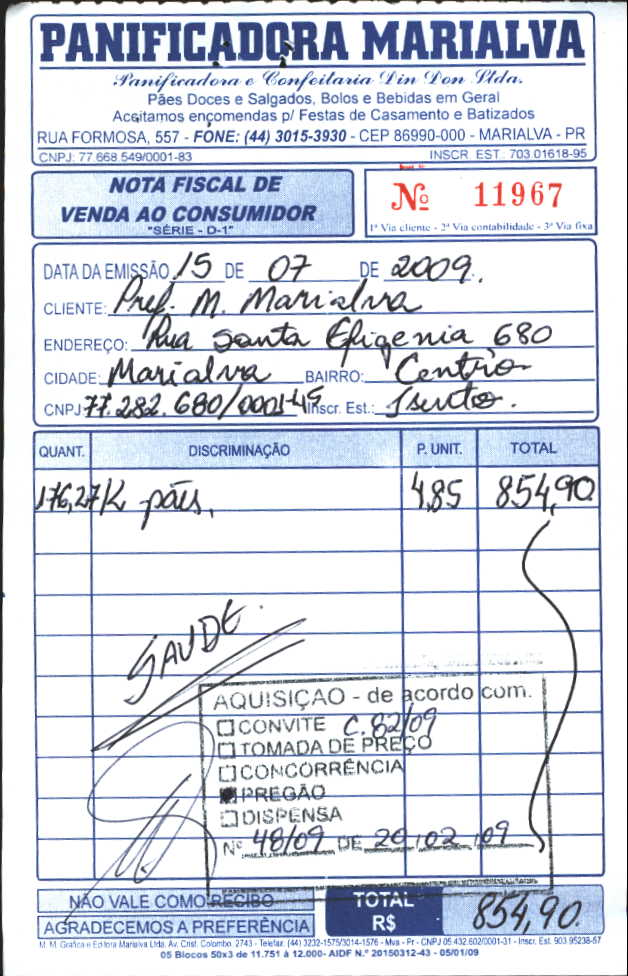 PANIFICADORA MARIALVA
Panificadora e Confeitaria Din Don Ltda.
Pães Doces e Salgados, Bolos e Bebidas em Geral
Aceitamos encomendas p/ Festas de Casamento e Batizados
RUA FORMOSA, 557 - FONE: (44) 3015-3930 - CEP 86990-000 - MARIALVA - PR
CNPJ: 77.668.549/0001-83 INSCR. EST. 703.01618-95
NOTA FISCAL DE
VENDA AO CONSUMIDOR
"SÉRIE - D-1"
Nº 11967
1ª Via cliente - 2ª Via contabilidade - 3ª Via fixa
DATA DA EMISSÃO 15 DE 07 DE 2009.
CLIENTE: Pref. M. Marialva
ENDEREÇO: Rua Santa Efigenia 680
CIDADE: Marialva BAIRRO: Centro
CNPJ 77.282.680/0001-45 Inscr. Est.: Isento.
QUANT. DISCRIMINAÇÃO P. UNIT. TOTAL
176,27 K pães, 4,85 854,90
SAUDE.
AQUISIÇÃO - de acordo com.
CONVITE C. 82/09
TOMADA DE PREÇO
CONCORRÊNCIA
PREGÃO
DISPENSA
Nº 48/09 DE 20/02/09
NÃO VALE COMO RECIBO
AGRADECEMOS A PREFERÊNCIA
TOTAL R$ 854,90
M. M. Gráfica e Editora Marialva Ltda. Av. Crist. Colombo, 2743 - Telefax: (44) 3232-1575/3014-1576 - Mva - Pr - CNPJ 05.432.602/0001-31 - Inscr. Est. 903.95238-57
05 Blocos 50x3 de 11.751 à 12.000- AIDF N.º 20150312-43 - 05/01/09